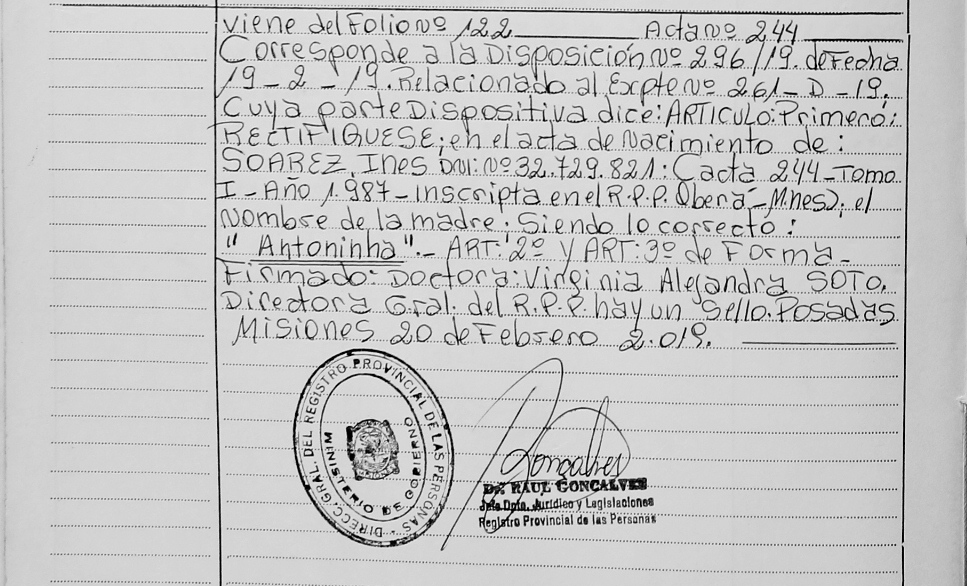 viene del Folio Nº 122 Acta Nº 244
Corresponde a la Disposición Nº 296/19. de Fecha
19-2-/19. Relacionado al Expte Nº 261-D-19.
Cuya parte Dispositiva dice: ARTICULO: Primero:
RECTIFIQUESE; en el acta de Nacimiento de:
SOAREZ, Ines DNI: Nº 32.729.821: Cacta 244-Tomo
I-Año 1.987-inscripta en el R.P.P. Obera-Mnes); el
Nombre de la madre. Siendo lo correcto:
"Antoninha".- ART: 2º Y ART: 3º de Forma-
Firmado: Doctora: Virginia Alejandra SOTO.
Directora Gral. del R.P.P. hay un Sello. Posadas
Misiones 20 de Febrero 2.019.
DIRECC. GRAL. DEL REGISTRO PROVINCIAL DE LAS PERSONAS
MINISTERIO DE GOBIERNO
Goncalves
Dr. RAUL GONCALVES
Jefe Dpto. Jurídico y Legislaciones
Registro Provincial de las Personas